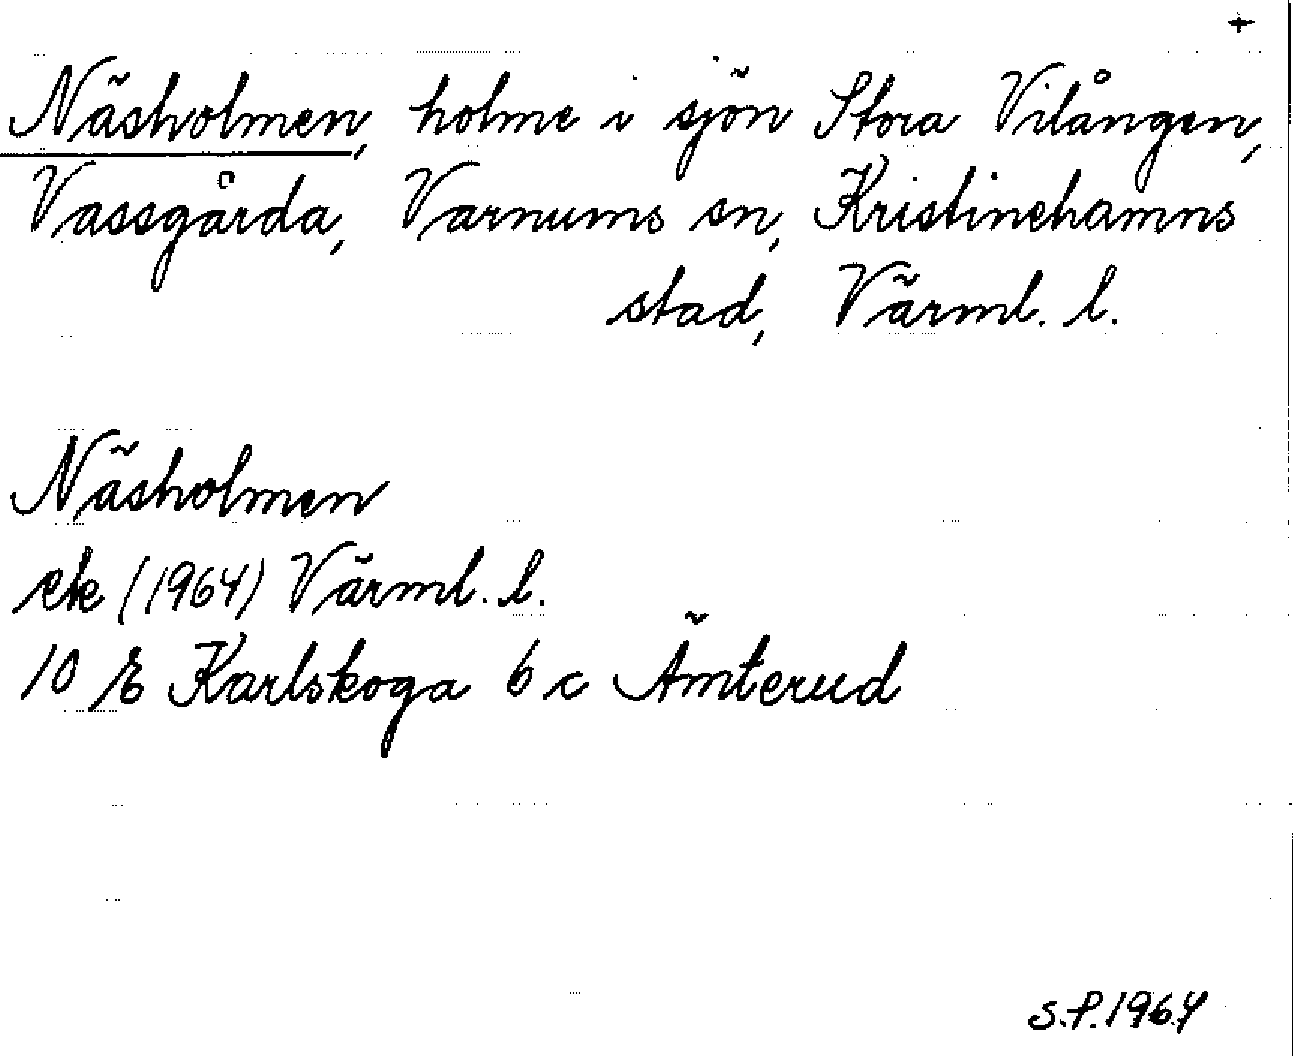 +
Näsholmen, holme i sjön Stora Vilången,
Vassgårda, Varnums sn, Kristinehamns
stad, Värml. l.
Näsholmen
ek (1964) Värml. l.
10 E Karlskoga 6 c Ämterud
S.P. 1964